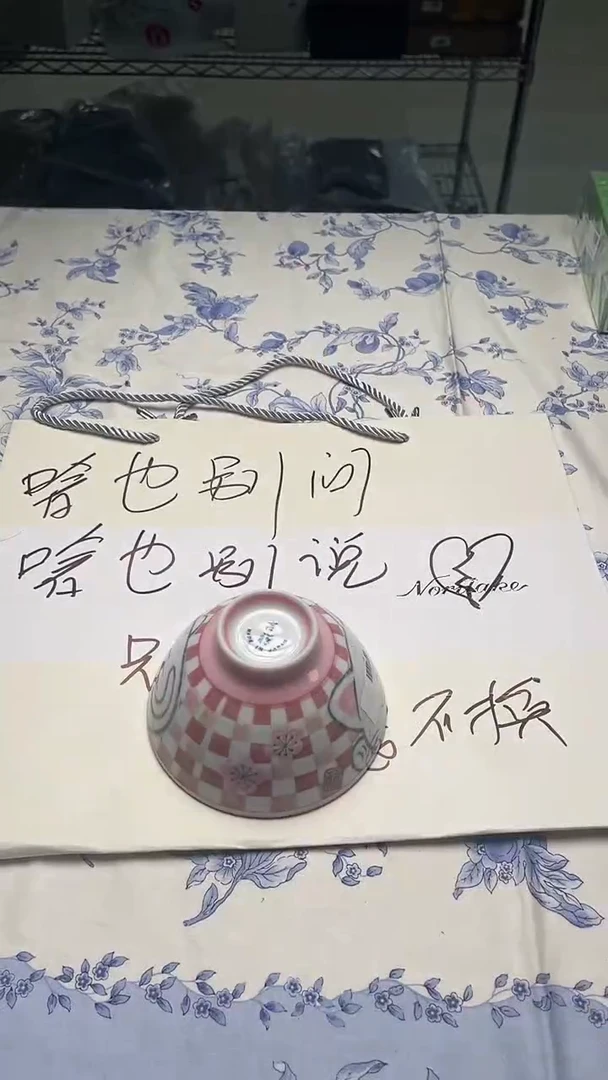 啥也别问
啥也别说
Noritake
只
不换